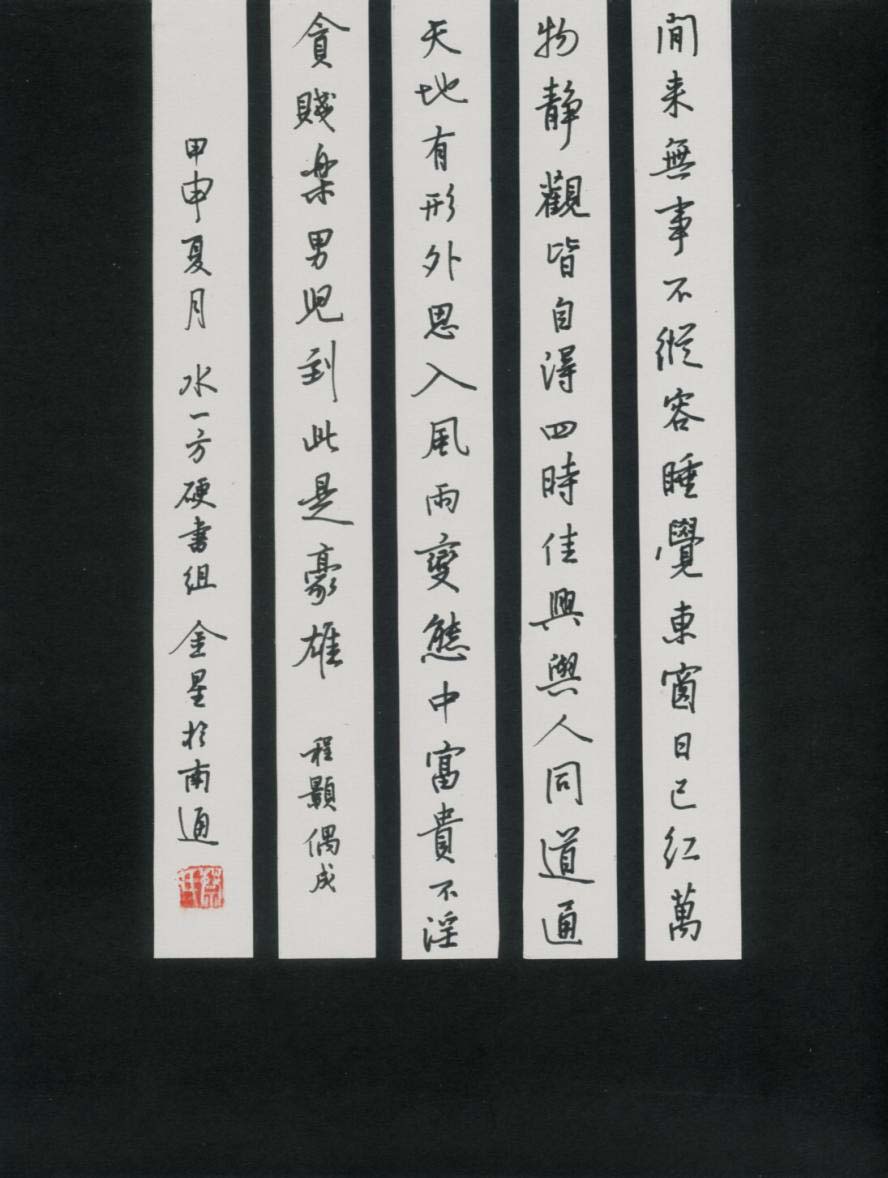 閒来無事不從容睡覺東窗日已红萬
物静觀皆自得四時佳興與人同道通
天地有形外思入風雨變態中富貴不淫
貪賤楽男児到此是豪雄 程顥偶成
甲申夏月 水一方硬書组 金星於南通